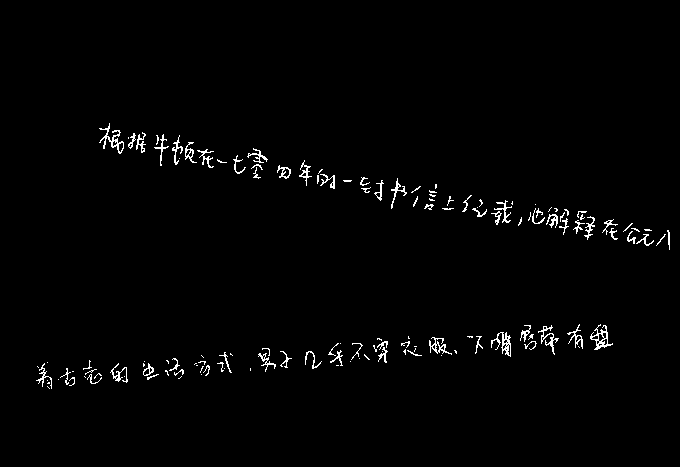 根据牛顿在一七零四年的一封书信上记载,他解释在公元八
着古老的生活方式,男子几乎不穿衣服、下嘴唇带有盘